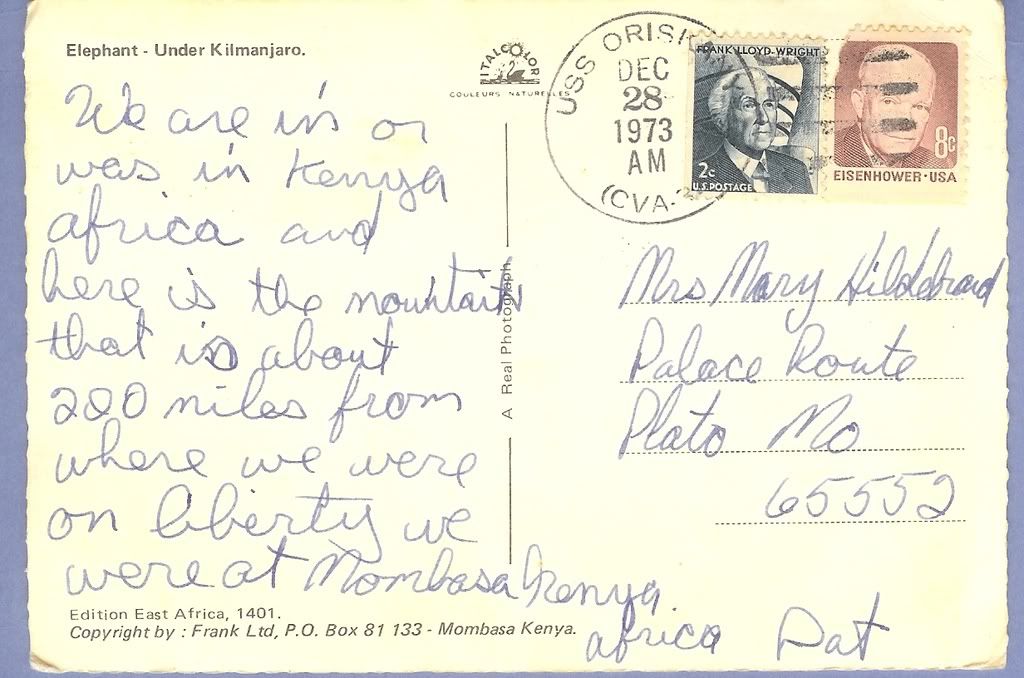 Elephant - Under Kilmanjaro.
ITALCOLOR
COULEURS NATURELLES
USS ORISK
DEC
28
1973
AM
(CVA-3
FRANK LLOYD WRIGHT
2c
U.S. POSTAGE
8c
EISENHOWER·USA
We are in or
was in Kenya
africa and
here is the mountain
that is about
200 miles from
where we were
on liberty we
were at Mombasa Kenya
africa Pat
A Real Photograph
Mrs Mary Hildebrand
Palace Route
Plato Mo
65552
Edition East Africa, 1401.
Copyright by : Frank Ltd, P.O. Box 81 133 - Mombasa Kenya.